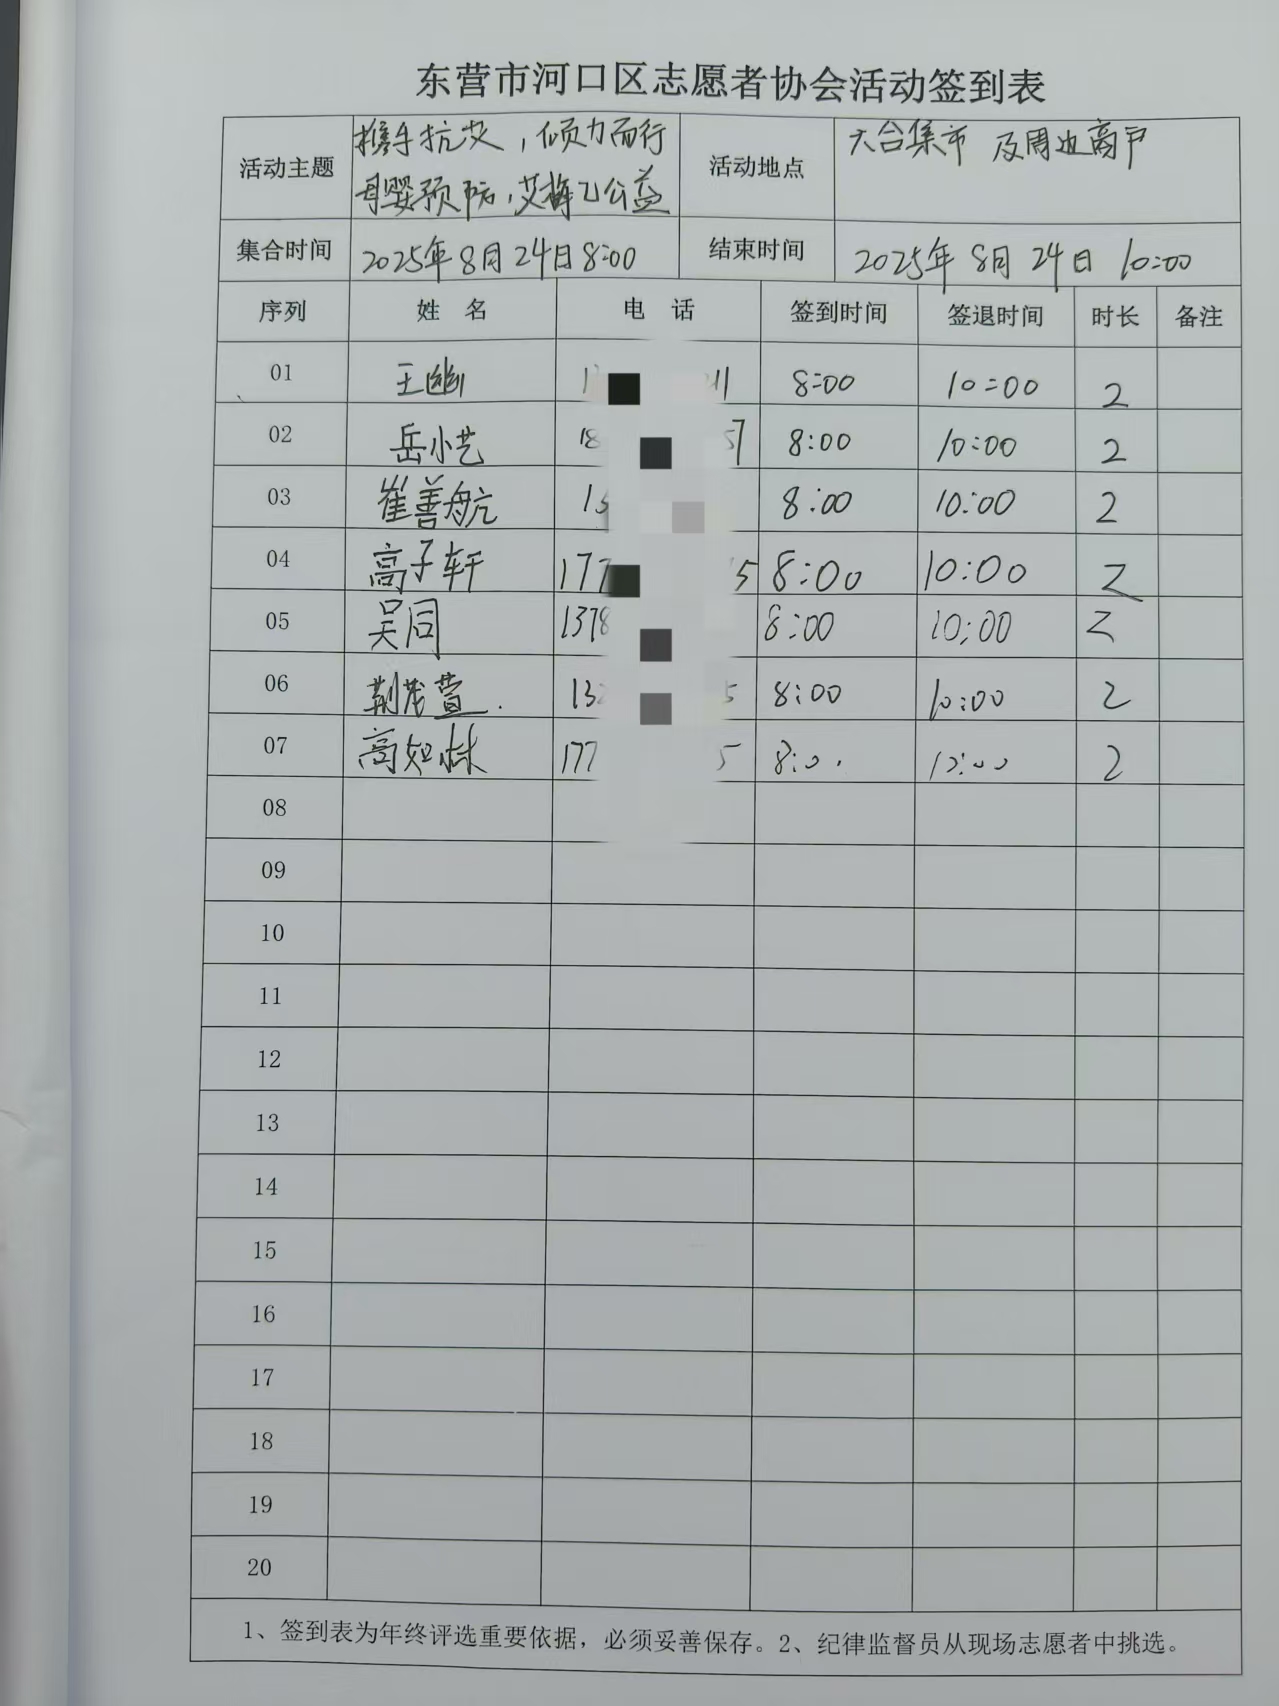 东营市河口区志愿者协会活动签到表
活动主题 携手抗艾，倾力而行 活动地点 六合集市 及周边商户
母婴预防，艾梅乙公益
集合时间 2025年8月24日8:00 结束时间 2025年8月24日 10:00
序列 姓 名 电 话 签到时间 签退时间 时长 备注
01 王幽 8:00 10:00 2
02 岳小艺 18 57 8:00 10:00 2
03 崔善航 8:00 10:00 2
04 高子轩 177 5 8:00 10:00 2
05 吴同 1378 8:00 10:00 2
06 荆茂萱 13 5 8:00 10:00 2
07 高如林 177 5 8:00 10:00 2
08
09
10
11
12
13
14
15
16
17
18
19
20
1、签到表为年终评选重要依据，必须妥善保存。2、纪律监督员从现场志愿者中挑选。